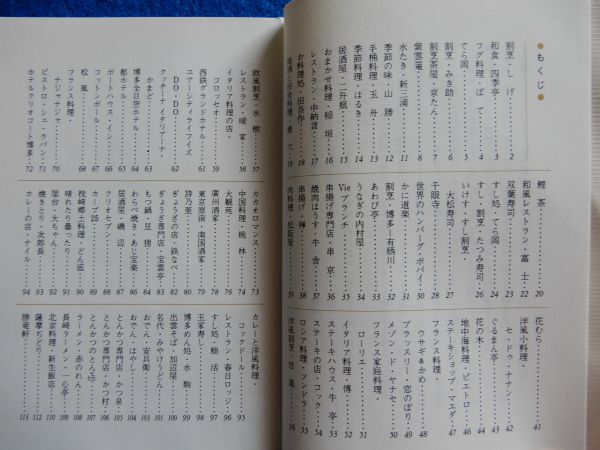 ●もくじ●
割烹・しげ・2
和食・四季亭・3
フグ料理・ぽて・4
てら岡・5
割烹・みき助・6
割烹茶屋・京たん・7
紫雲庵・8
水たき・新三浦・11
季節の味・山勝・12
手桶料理・玉舟・13
季節料理・はるき・14
居酒屋・二升瓶・15
おまかせ料理・稲垣・16
レストラン・中納言・17
お料理処・田吾作・18
地酒と田舎料理・六・19
鰹茶・20
和風レストラン・富士・22
双葉寿司・23
すし処・てら岡・24
すし・割烹・たつみ寿司・26
いけす・すし割烹・
大松寿司・27
千眼寺・28
世界のハンバーグ・ポパイ・30
かに道楽・31
割烹・博多・有栖川・32
あわび亭・33
うなぎの内村屋・34
Vieブランチ・35
焼肉はうす・牛舎・36
串揚専門店・串京・37
串揚げ・38
肉料理・松阪屋・39
花むら・41
洋風小料理・
セ・ドゥ・ナナ・42
ぐるまん亭・43
花の木・44
地中海料理・ピエトロ・46
ステーキショップ・マエダ・47
フランス料理・
ウサギ&かめ・48
ブラッスリー・恋のぼり・49
メゾン・ド・ヤナセ・50
フランス家庭料理・
ローリエ・51
イタリア料理・傳・56
ステーキハウス・牛亭・53
ステーキの店・コック・54
ロシア料理・ツンドラ・55
洋風割烹・56
欧風割烹・水樹・57
レストラン・暖家・58
イタリア料理の店・
コロッセオ・59
西鉄グランドホテル・61
ユアーシティライフイズ
DO・DO・62
クッチーナ・イタリアーナ・
かまど・63
博多全日空ホテル・64
都ホテル・65
ボートハウス・イン・66
コットン・ボール・67
葡萄の樹・68
フランス料理・
ナジャ・ナジャ・70
ビストロ・シェ・ラパン・71
ホテルクリオコート博多・72
カカオロマンス・73
中国料理・桃林・74
大観苑・75
廣州酒家・76
東京原宿・南国酒家・78
詩乃亜・79
ぎょうざの店・鉄なべ・80
ぎょうざ専門店・宝雲亭・81
もつ鍋・豆狸・84
わらべ焼き・あじ宝楽・86
居酒屋・磯辺・87
クリオセブン・88
カーブ25・89
枕崎郷土料理・どん底・90
晴れたり曇ったり・91
屋台・大ちゃん・91
焼きとり・次郎長・93
カレーの店・ナイル・94
カレーと洋風料理・
コックドール・95
レストラン・春日ロッジ・96
すし処・鮨活・97
玉家寿し・98
博多めん処・水駒・99
出雲そば・加辺屋・100
名代・みやけうどん・101
おでん・安兵衛・103
おでん・はやし・104
とんかつ専門店・かつ泉・105
とんかつ専門店・かつ村・106
とんかつのとん喜・107
ラーメン・赤のれん・108
長崎ラーメン・一心亭・109
北京料理・新生飯店・110
薩摩ぢどり・111
勝竜軒・113